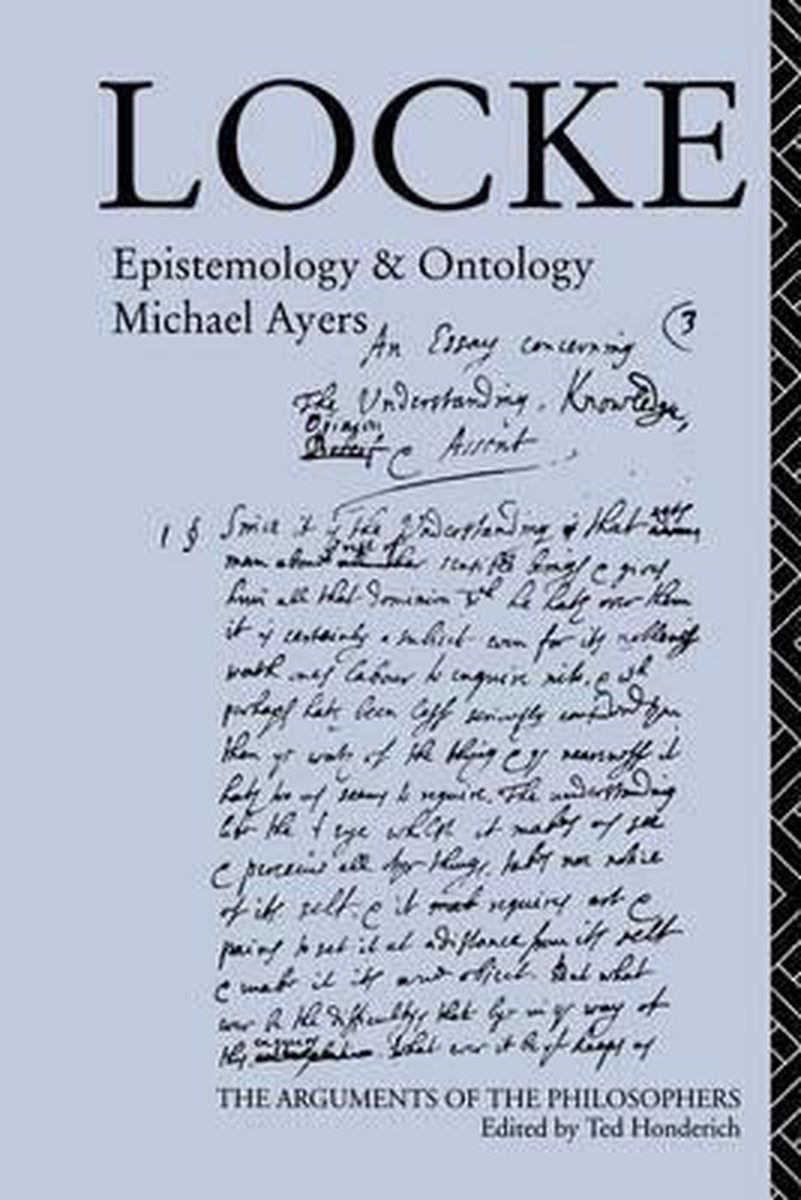 LOCKE
Epistemology & Ontology
Michael Ayers
An Essay concerning (3
The Understanding, Knowledge,
Opinion
Belief & Assent
1 § Since it is the Understanding that sets
man above the rest of sensible beings & gives
him all that dominion he hath over them
it is certainly a subject even for its noblenesse
worth our labour to enquire into. &
perhaps hath been lesse seriously considered
then of the thing & nearnesse it
hath to us seems to require. The understanding
like the eye whilst it makes us see
& perceive all things, takes noe notice
of its self. & it requires art &
pains to set it at a distance from its self
& make it its owne object. But what
ever be the difficultys that ly in way of
this enquiry What ever it be keeps us
THE ARGUMENTS OF THE PHILOSOPHERS
Edited by Ted Honderich